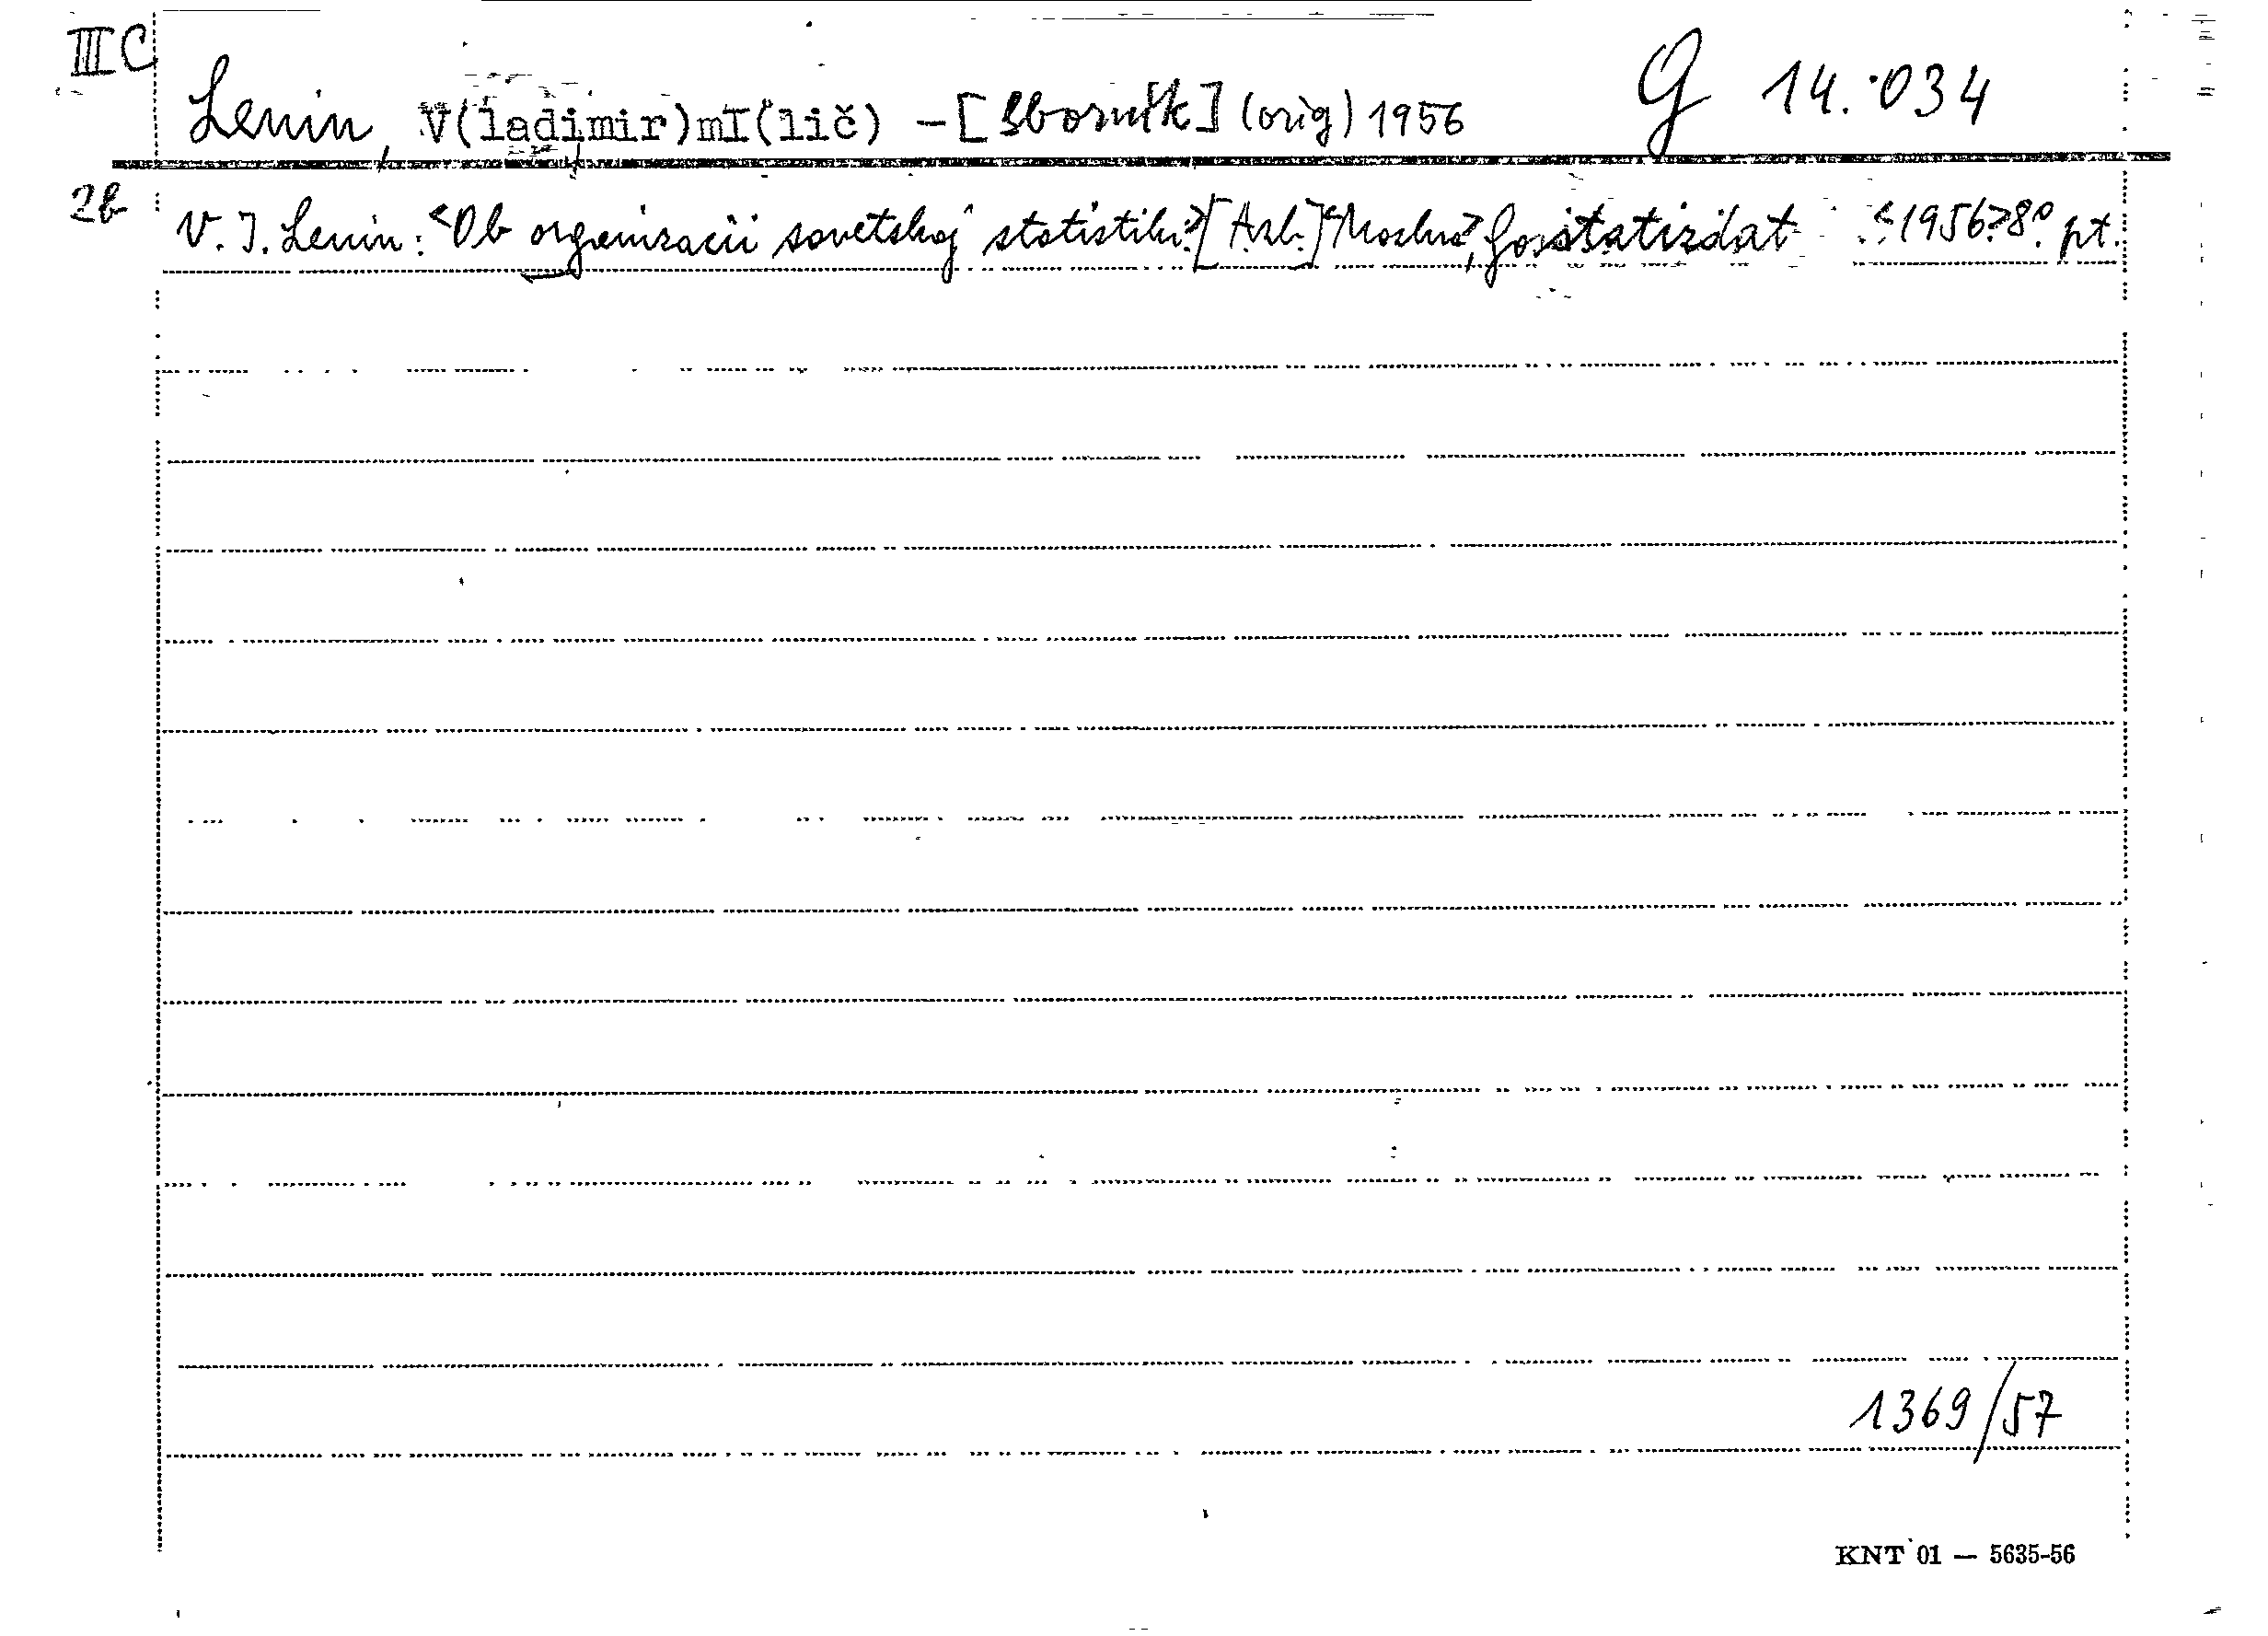 III C
Lenin, V(ladimir) I(lič) - [Sborník] (orig) 1956 G 14.034
2b V. I. Lenin: <Ob organizacii sovetskoj statistiki.> [Azb.] <Moskva>, Gosstatizdat <1956>. 8° pt.
1369/57
KNT 01 — 5635-56